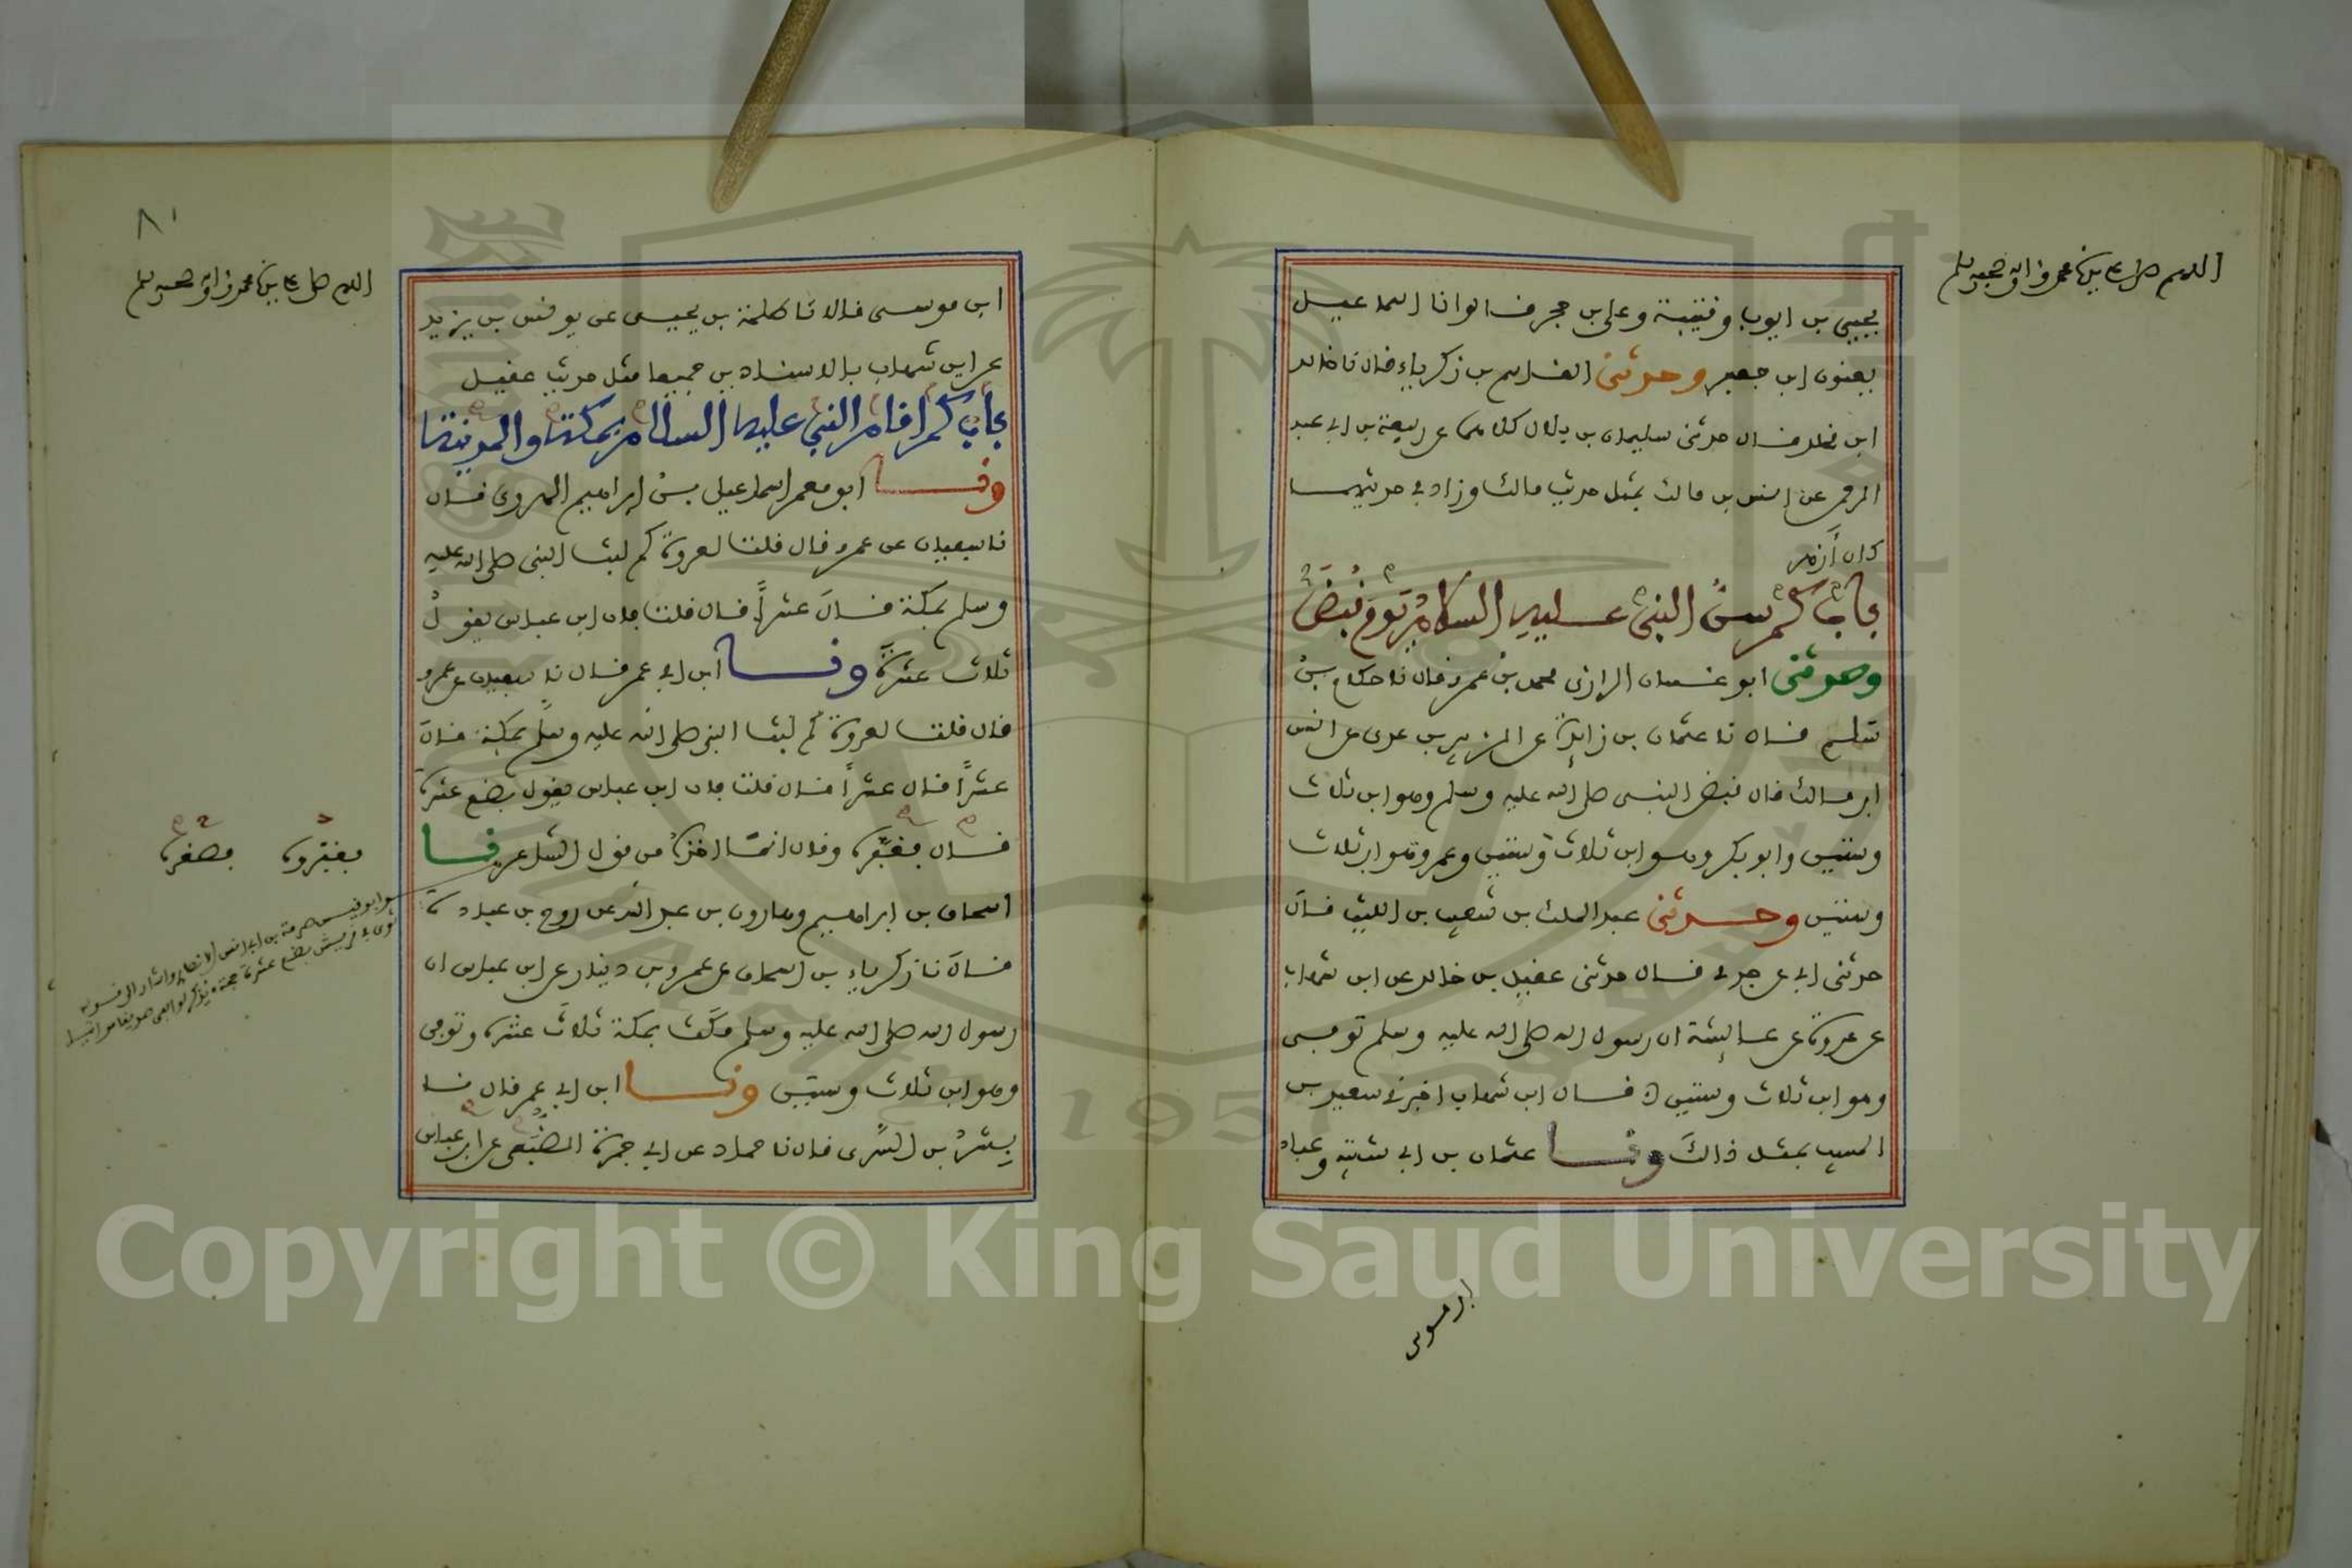 اللهم صل على سيدنا محمد وءاله وصحبه وسلم
يحيى بن ايوب وقتيبة وعلى بن حجر قالوا نا اسماعيل
يعنون ابن جعفر وحدثنى القاسم بن زكرياء قال نا خالد
ابن مخلد قال حدثنى سليمان بن بلال كلاهما عن ربيعة بن ابى عبد
الرحمن عن انس بن مالك بمثل حديث مالك وزاد فى حديثهما
كان أزهر
باب كم سن النبى عليه السلام يوم قبض
وحدثنى ابو غسان الرازى محمد بن عمرو قال نا حكام بن
سلم قال نا عثمان بن زائدة عن الزبير بن عدى عن انس
ابن مالك قال قبض النبى صلى الله عليه وسلم وهو ابن ثلاث
وستين وابو بكر وهو ابن ثلاث وستين وعمر وهو ابن ثلاث
وستين وحدثنى عبد الملك بن شعيب بن الليث قال
حدثنى ابى عن جدى قال حدثنى عقيل بن خالد عن ابن شهاب
عن عروة عن عائشة ان رسول الله صلى الله عليه وسلم توفى
وهو ابن ثلاث وستين قال ابن شهاب اخبرنى سعيد بن
المسيب بمثل ذالك ونا عثمان بن ابى شيبة وعباد
ابن موسى
٨١
اللهم صل على سيدنا محمد وءاله وصحبه وسلم
ابن موسى قالا نا طلحة بن يحيى عن يونس بن يزيد
عن ابن شهاب بالاسنادين جميعا مثل حديث عقيل
باب كم اقام النبى عليه السلام بمكة والمدينة
ونا ابو معمر اسماعيل بن ابراهيم الهروى قال
نا سفيان عن عمرو قال قلت لعروة كم لبث النبى صلى الله عليه
وسلم بمكة قال عشرا قال قلت فان ابن عباس يقول
ثلاث عشرة ونا ابن ابى عمر قال نا سفيان عن عمرو
قال قلت لعروة كم لبث النبى صلى الله عليه وسلم بمكة قال
عشرا قال عشرا قال قلت فان ابن عباس يقول بضع عشرة
قال فغفره وقال انما اخذه من قول الشاعر نا
اسحاق بن ابراهيم وهارون بن عبد الله عن روح بن عبادة
قال نا زكرياء بن اسحاق عن عمرو بن دينار عن ابن عباس ان
رسول الله صلى الله عليه وسلم مكث بمكة ثلاث عشرة وتوفى
وهو ابن ثلاث وستين ونا ابن ابى عمر قال نا
بشر بن السرى قال نا حماد عن ابى جمرة الضبعى عن ابن عباس
فصغره
هو ابو قيس صرمة بن ابى انس الانصارى واشار الى قوله
ثوى فى قريش بضع عشرة حجة يذكر لو يلقى صديقا مواتيا